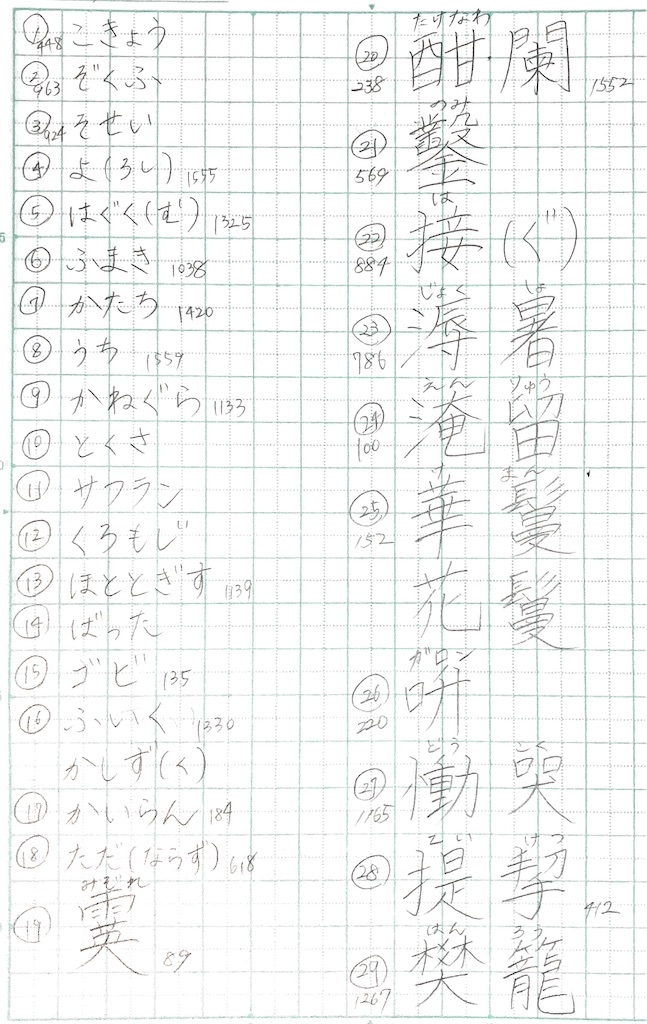 ① こきょう 448
② ぞくふ 963
③ そせい 924
④ よ(ろし) 1555
⑤ はぐく(む) 1325
⑥ ふまき 1038
⑦ かたち 1420
⑧ うち 1559
⑨ かねぐら 1133
⑩ とくさ
⑪ サフラン
⑫ くろもじ
⑬ ほととぎす 1139
⑭ ばった
⑮ ゴビ 135
⑯ ふいく 1330
かしず(く)
⑰ かいらん 184
⑱ ただ(ならず) 618
みぞれ
⑲ 霙 89
たけなわ
⑳ 酣・闌 238 1552
のみ
㉑ 鑿 569
は
㉒ 接(ぐ) 884
じょく しょ
㉓ 溽暑 786
えん りゅう
㉔ 淹留 100
け まん
㉕ 華鬘 152
花鬘
ガロン
㉖ 呏 220
どう こく
㉗ 慟哭 1165
てい けつ
㉘ 提挈 412
はん ろう
㉙ 樊籠 1267